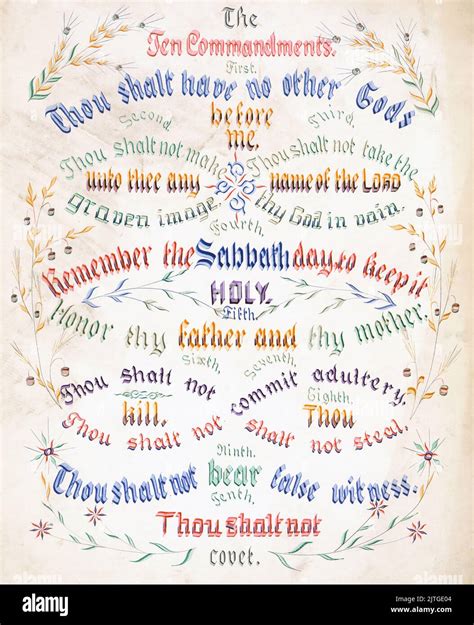 The
Ten Commandments.
First.
Thou shalt have no other Gods
before
me.
Second.
Thou shalt not make
unto thee any
graven image.
Third.
Thou shalt not take the
name of the LORD
thy God in vain.
Fourth.
Remember the Sabbath day, to keep it
HOLY.
Fifth.
Honor thy father and thy mother.
Sixth.
Thou shalt not
kill.
Seventh.
Thou shalt not commit adultery.
Eighth.
Thou
shalt not steal.
Ninth.
Thou shalt not bear false witness.
Tenth.
Thou shalt not
covet.
alamy
Image ID: 2JTGE04
www.alamy.com